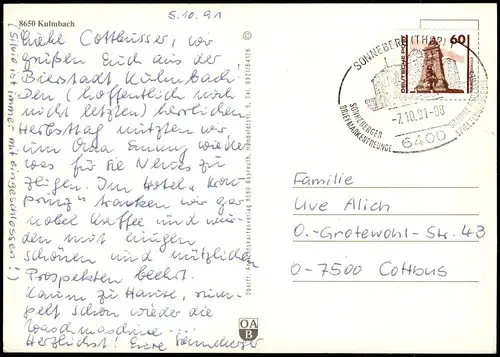 5.10.91
8650 Kulmbach
Liebe Cottbusser, wir
grüßen Euch aus der
Bierstadt Kulmbach!
Den (hoffentlich noch
nicht letzten) herrlichen
Herbsttag nützten wir,
um Oma Emmy wieder
was für sie Neues zu
zeigen. Im Hotel „Kron-
prinz" tranken wir gar
nobel Kaffee und wur-
den mit einigen
schönen und nützlichen
Prospekten beehrt.
Kaum zu Hause, rum-
pelt schon wieder die
Waschmaschine ...
Herzlichst! Eure
(Silvio ist immer mit eingeschlossen!)
Oberfr. Ansichtskartenverlag 8580 Bayreuth, Tel. 0921/64126
©
OA
B
DEUTSCHE POST
60
SONNEBERG (THÜR) 1
-7.10.91-08
6400
SONNEBERGER
BRIEFMARKENFREUNDE
Familie
Uwe Alich
O.-Grotewohl-Str. 43
O-7500 Cottbus